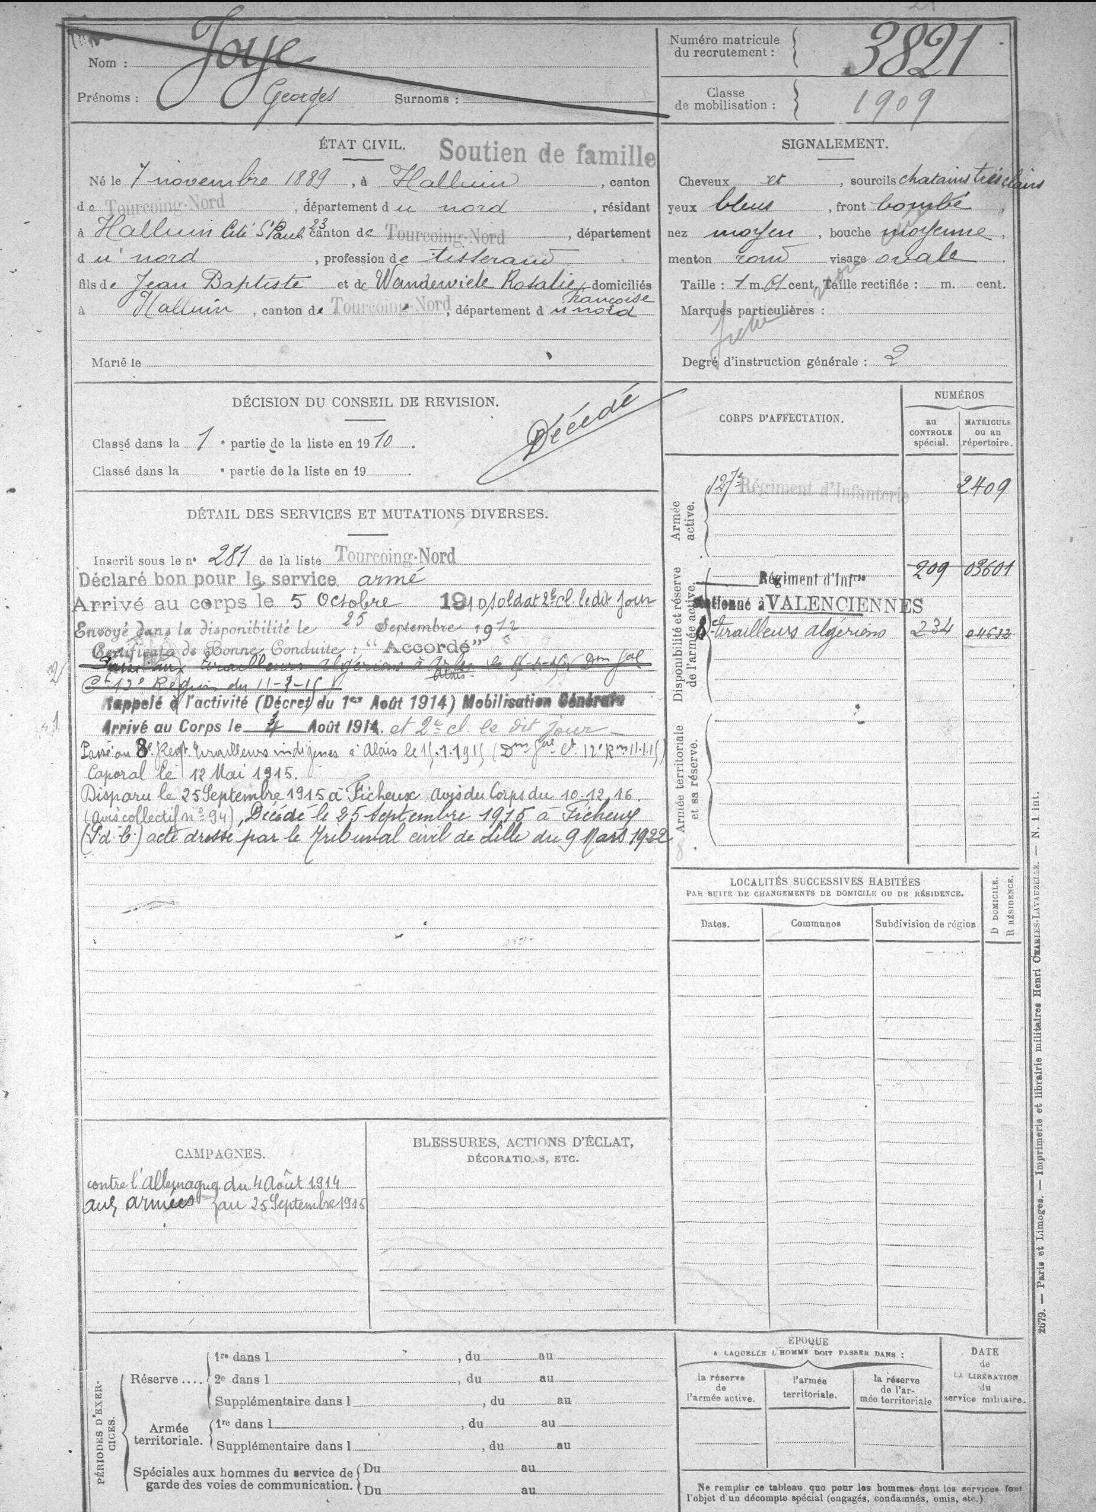 Nom : Joye
Prénoms : Georges Surnoms :
Numéro matricule du recrutement : 3821
Classe de mobilisation : 1909
ÉTAT CIVIL.
Soutien de famille
Né le 7 novembre 1889, à Halluin, canton
de Tourcoing-Nord, département du nord, résidant
à Halluin Cité St Paul 23 canton de Tourcoing-Nord, département
du nord, profession de tisserand
fils de Jean Baptiste et de Wanderviele Rosalie Françoise domiciliés
à Halluin, canton de Tourcoing-Nord, département du nord
Marié le
SIGNALEMENT.
Cheveux et, sourcils chatains très clairs
yeux bleus, front bombé,
nez moyen, bouche moyenne,
menton rond visage ovale
Taille : 1 m. 61 cent. Taille rectifiée : m. cent.
Marques particulières :
Degré d'instruction générale : 2
DÉCISION DU CONSEIL DE REVISION.
Classé dans la 1e partie de la liste en 1910.
Classé dans la e partie de la liste en 19
Décédé
DÉTAIL DES SERVICES ET MUTATIONS DIVERSES.
Inscrit sous le no 281 de la liste Tourcoing-Nord
Déclaré bon pour le service armé
Arrivé au corps le 5 Octobre 1910 soldat 2e cl. le dit jour
Envoyé dans la disponibilité le 25 Septembre 1912
Certificat de Bonne Conduite : "Accordé"
Rappelé à l'activité (Décret du 1er Août 1914) Mobilisation Générale
Arrivé au Corps le 4 Août 1914. et 2e cl. le dit jour
Passé au 8e Regt. tirailleurs indigènes à Alais le
Caporal le 12 Mai 1915.
Disparu le 25 Septembre 1915 à Ficheux avis du Corps du 10-12-16.
(avis collectif no 94), Décédé le 25 septembre 1915 à Ficheux
(P. d. C.) acte dressé par le Tribunal civil de Lille du 9 Mars 1922
CORPS D'AFFECTATION.
NUMÉROS
AU CONTROLE spécial.
MATRICULE OU AU répertoire.
Armée active.
127e Régiment d'Infanterie 2409
Disponibilité et réserve de l'armée active.
Régiment d'Infrie 209 03601
stationné à VALENCIENNES
8e tirailleurs algeriens 234
Armée territoriale et sa réserve.
LOCALITÉS SUCCESSIVES HABITÉES
PAR SUITE DE CHANGEMENTS DE DOMICILE OU DE RÉSIDENCE.
Dates. Communes Subdivision de région
D DOMICILE.
R RÉSIDENCE.
CAMPAGNES.
contre l'Allemagne du 4 Août 1914
aux armées au 25 Septembre 1915
BLESSURES, ACTIONS D'ÉCLAT,
DÉCORATIONS, ETC.
PÉRIODES D'EXERCICES.
Réserve ....
1re dans l , du au
2e dans l , du au
Supplémentaire dans l , du au
Armée territoriale.
1re dans l , du au
Supplémentaire dans l , du au
Spéciales aux hommes du service de garde des voies de communication.
Du au
Du au
EPOQUE
A LAQUELLE L'HOMME DOIT PASSER DANS :
la réserve de l'armée active.
l'armée territoriale.
la réserve de l'armée territoriale
DATE de LA LIBÉRATION du service militaire.
Ne remplir ce tableau que pour les hommes dont les services font
l'objet d'un décompte spécial (engagés, condamnés, omis, etc.)
2679. — Paris et Limoges. — Imprimerie et librairie militaires Henri CHARLES-LAVAUZELLE. — N. 1 int.